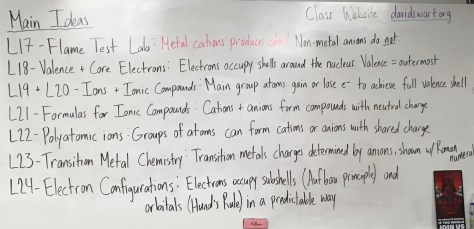 Main Ideas
Class Website davidswart.org
L17 - Flame Test Lab: Metal cations produce color! Non-metal anions do not.
L18 - Valence + Core Electrons: Electrons occupy shells around the nucleus Valence = outermost
L19 + L20 - Ions + Ionic Compounds: Main group atoms gain or lose e- to achieve full valence shell
L21 - Formulas for Ionic Compounds: Cations + anions form compounds with neutral charge
L22 - Polyatomic ions: Groups of atoms can form cations or anions with shared charge
L23 - Transition Metal Chemistry: Transition metals charges determined by anions, shown w/ Roman numeral
L24 - Electron Configurations: Electrons occupy subshells (Aufbau principle) and
orbitals (Hund's Rule) in a predictable way
JOIN US